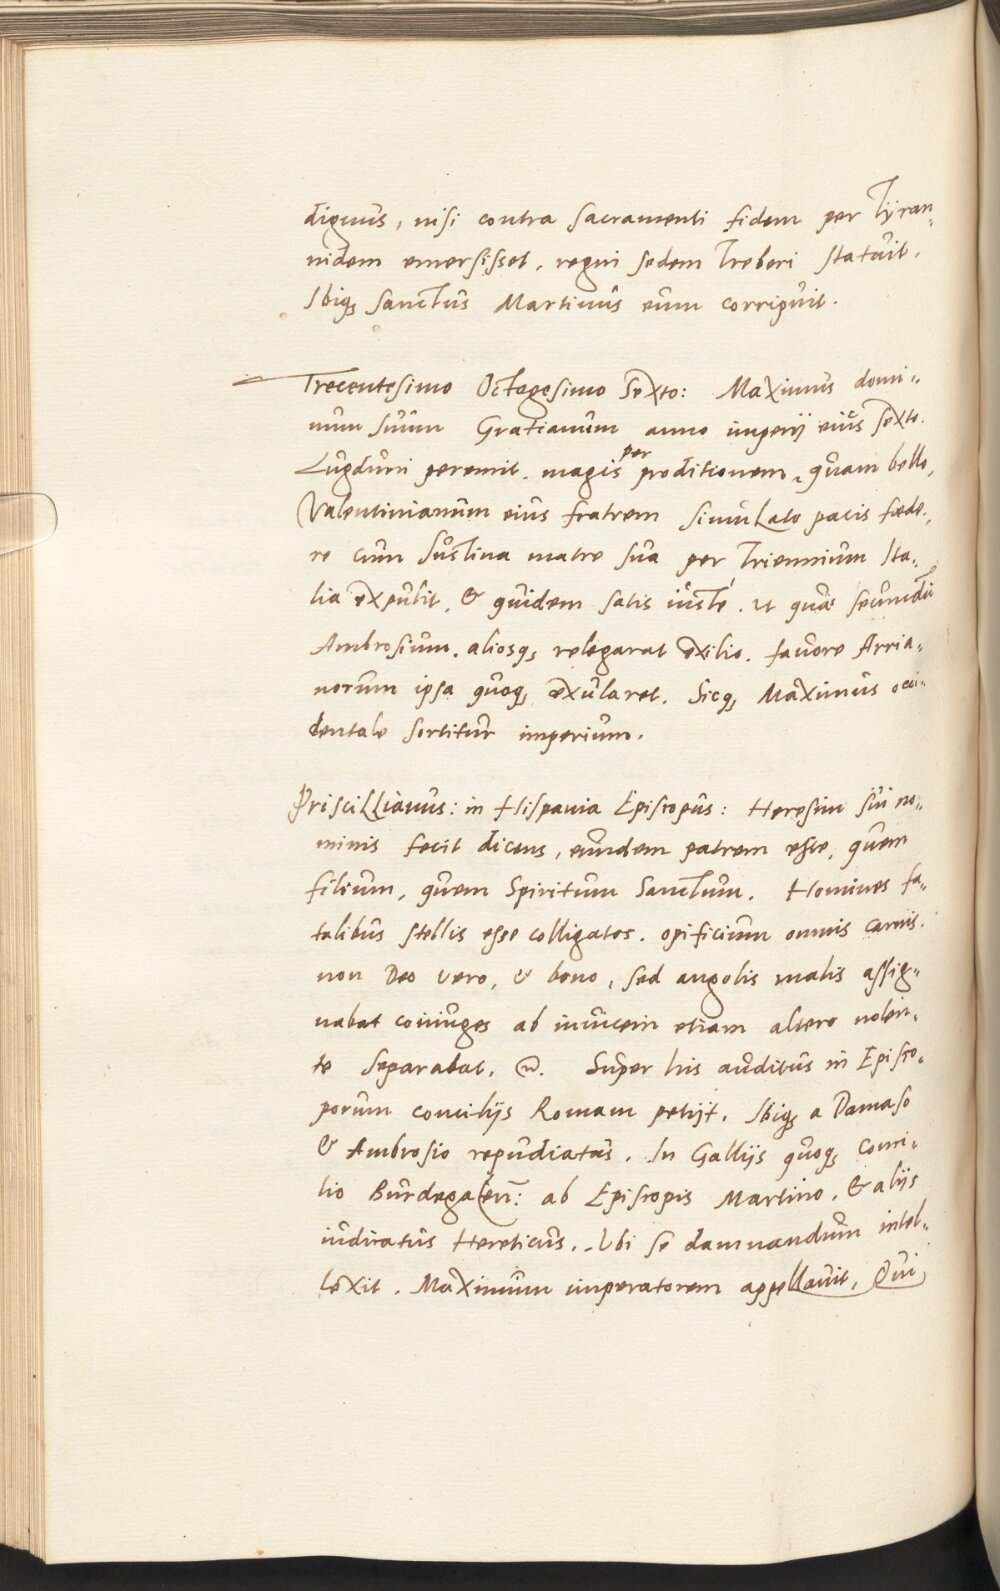 dignus, nisi contra sacramenti fidem per Tÿran„
nidem emersisset, regni sedem Treberi statuit.
Ibiqꝫ Sanctus Martinus eum corripuit.
Trecentesimo Octagesimo Sexto: Maximus domi„
num suum Gratianum anno imperÿ eius sexto.
Lugduni peremit. magis per proditionem, quam bello,
Valentinianum eius fratrem simulato pacis fæde„
re cum Iustina matre sua per Triennium Ita„
lia expulit, & quidem satis iuste. ut quæ secundū
Ambrosium. aliosqꝫ relegarat exilio. favore Arria„
norum ipsa quoqꝫ exularet. Sicqꝫ Maximus occi„
dentale sortitur imperium.
Priscillianus: in Hispania Episcopus: Heresim sui no„
minis fecit dicens, eundem patrem esse, quem
filium, quem Spiritum Sanctum. Homines fa„
talibus stellis esse colligatos. opificium omnis carnis.
non Deo vero, & bono, sed angelis malis assig„
nabat coniuges ab invicem etiam altero nolen„
te separabat. Super his auditus in Episco„
porum concilijs Romam petijt. Ibiqꝫ a Damaso
& Ambrosio repudiatus. In Gallijs quoqꝫ conci„
lio Burdegalen̄: ab Episcopis Martino, & alijs
iudicatus Hereticus. Ubi se damnandum intel„
lexit. Maximum imperatorem appellauit, Qui